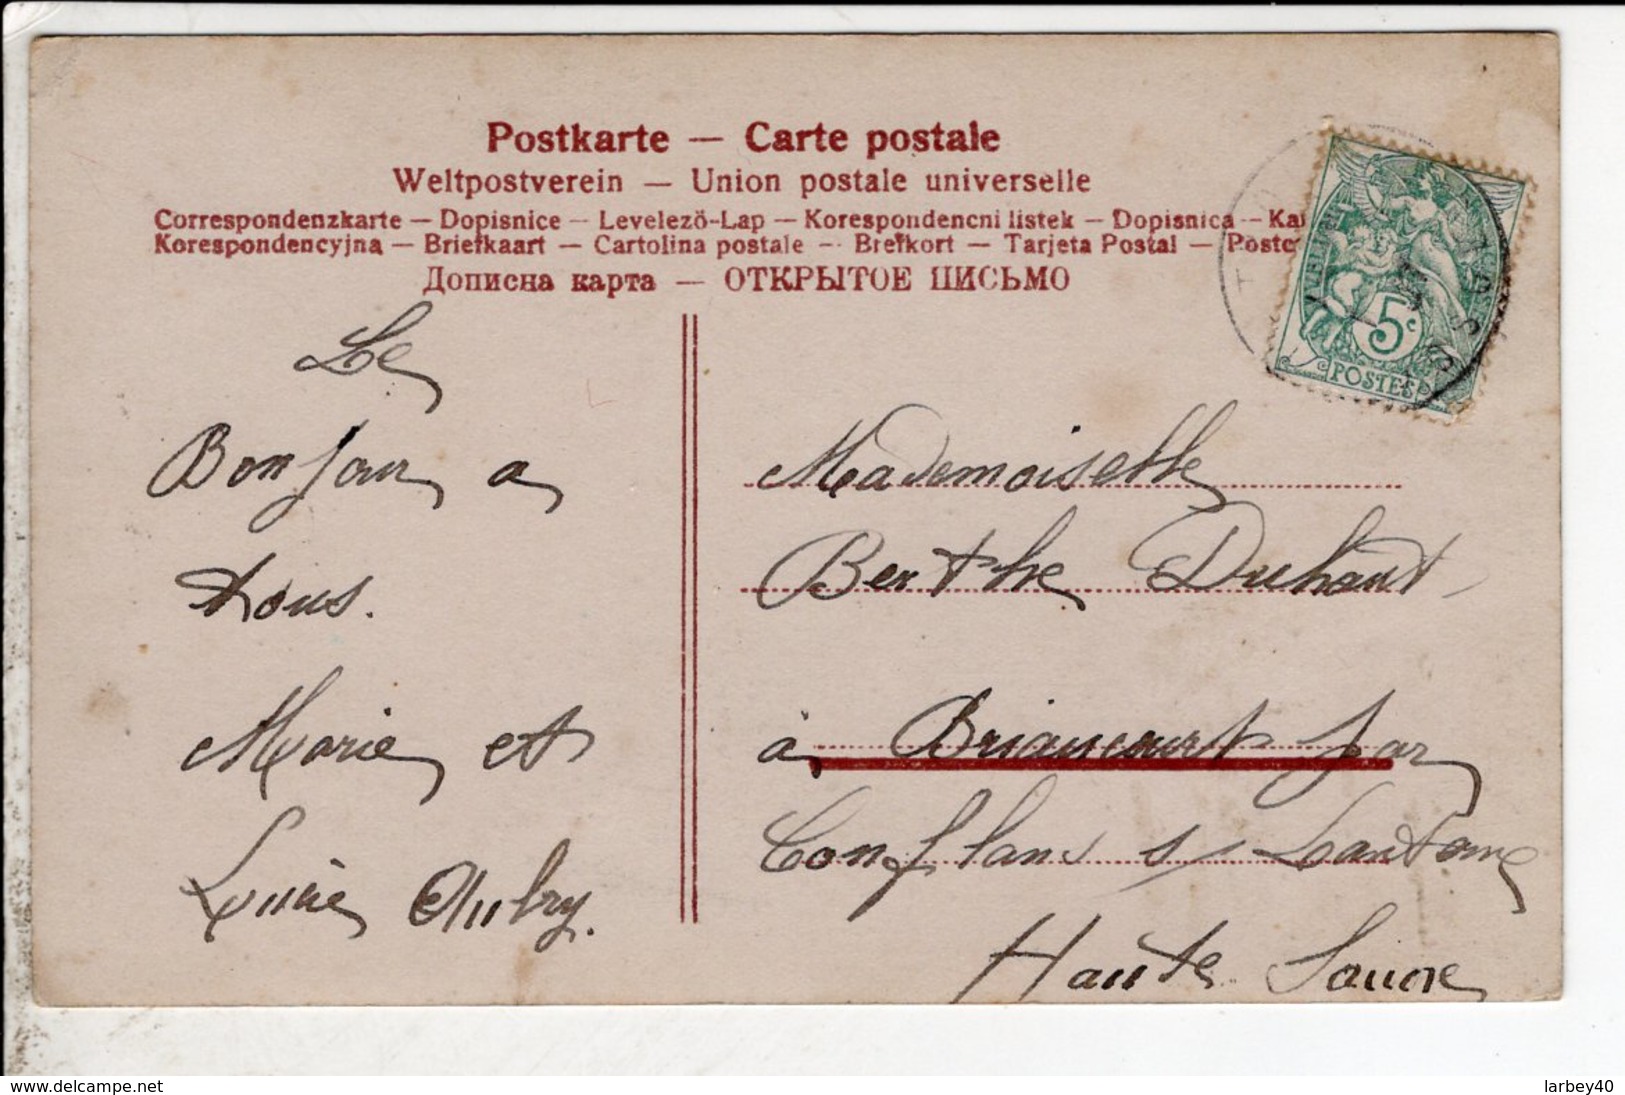 Postkarte — Carte postale
Weltpostverein — Union postale universelle
Correspondenzkarte — Dopisnice — Levelező-Lap — Korespondencni listek — Dopisnica — Ka
Korespondencyjna — Briefkaart — Cartolina postale — Brefkort — Tarjeta Postal — Postc
Дописна карта — ОТКРЫТОЕ ПИСЬМО
5c
POSTES
Le
Bonjour a
tous.
Marie et
Aubry.
Mademoiselle
Berthe Duhaut
à Briaucourt par
Conflans s/ Lanterne
Haute Saone
www.delcampe.net
larbey40